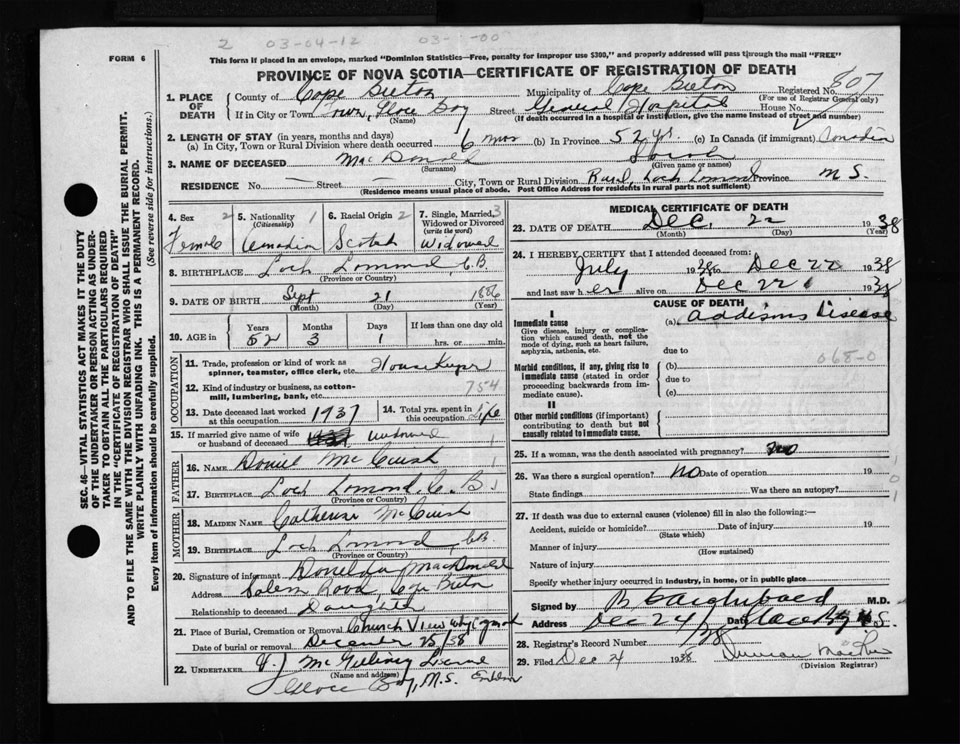 2 03-04-12 03- -00
FORM 6
This form if placed in an envelope, marked "Dominion Statistics—Free, penalty for improper use $300," and properly addressed will pass through the mail "FREE"
PROVINCE OF NOVA SCOTIA—CERTIFICATE OF REGISTRATION OF DEATH
1. PLACE OF DEATH
County of Cape Breton Municipality of Cape Breton Registered No. 807
(For use of Registrar General only)
If in City or Town Town, Glace Bay Street General Hospital House No.
(Name) (If death occurred in a hospital or institution, give the name instead of street and number)
2. LENGTH OF STAY (in years, months and days)
(a) In City, Town or Rural Division where death occurred 6 mos (b) In Province 52 yrs. (c) In Canada (if immigrant) Canadian
3. NAME OF DECEASED MacDonald Sarah
(Surname) (Given name or names)
RESIDENCE No. — Street City, Town or Rural Division Rural, Loch Lomond Province N.S.
(Residence means usual place of abode. Post Office Address for residents in rural parts not sufficient)
4. Sex 2 5. Nationality 1 (Citizenship) 6. Racial Origin 2 7. Single, Married, 3 Widowed or Divorced (write the word)
Female Canadian Scotch Widowed
8. BIRTHPLACE Loch Lomond, C.B.
(Province or Country)
9. DATE OF BIRTH Sept 21 1886
(Month) (Day) (Year)
10. AGE in Years Months Days If less than one day old
52 3 1 hrs. or min.
OCCUPATION
11. Trade, profession or kind of work as spinner, teamster, office clerk, etc. House Keeper
12. Kind of industry or business, as cotton-mill, lumbering, bank, etc. 754
13. Date deceased last worked at this occupation 1937 14. Total yrs. spent in this occupation Life
15. If married give name of wife or husband of deceased widowed
FATHER
16. NAME Daniel McCuish
17. BIRTHPLACE Loch Lomond, C.B.
(Province or Country)
MOTHER
18. MAIDEN NAME Catherine McCuish
19. BIRTHPLACE Loch Lomond, C.B.
(Province or Country)
20. Signature of informant Donelda MacDonald
Address Salem Road, Cape Breton
Relationship to deceased Daughter
21. Place of Burial, Cremation or Removal Church View
Date of burial or removal December 25/38
22. UNDERTAKER V.J. McGillivray
(Name and address)
Glace Bay, N.S.
MEDICAL CERTIFICATE OF DEATH
23. DATE OF DEATH Dec. 22 1938
(Month) (Day) (Year)
24. I HEREBY CERTIFY that I attended deceased from:
July 1938 to Dec 22 1938
and last saw her alive on Dec 22 1938
CAUSE OF DEATH
I
Immediate cause (a) Addisons Disease
Give disease, injury or complication which caused death, not the mode of dying, such as heart failure, asphyxia, asthenia, etc. due to
068-0
Morbid conditions, if any, giving rise to immediate cause (stated in order proceeding backwards from immediate cause). (b)
due to
(c)
II
Other morbid conditions (if important) contributing to death but not causally related to immediate cause.
25. If a woman, was the death associated with pregnancy? no
26. Was there a surgical operation? No Date of operation 19
State findings Was there an autopsy?
27. If death was due to external causes (violence) fill in also the following:—
Accident, suicide or homicide? Date of injury 19
(State which)
Manner of injury
(How sustained)
Nature of injury
Specify whether injury occurred in Industry, in home, or in public place
Signed by M.D.
Address Date
Dec 24/38 Glace Bay N.S.
28. Registrar's Record Number
29. Filed Dec 24 1938 Duncan
(Division Registrar)
SEC. 46—VITAL STATISTICS ACT MAKES IT THE DUTY
OF THE UNDERTAKER OR PERSON ACTING AS UNDER-
TAKER TO OBTAIN ALL THE PARTICULARS REQUIRED
IN THE "CERTIFICATE OF REGISTRATION OF DEATH"
AND TO FILE THE SAME WITH THE DIVISION REGISTRAR WHO SHALL ISSUE THE BURIAL PERMIT.
WRITE PLAINLY WITH UNFADING INK. THIS IS A PERMANENT RECORD.
Every item of information should be carefully supplied. (See reverse side for instructions.)